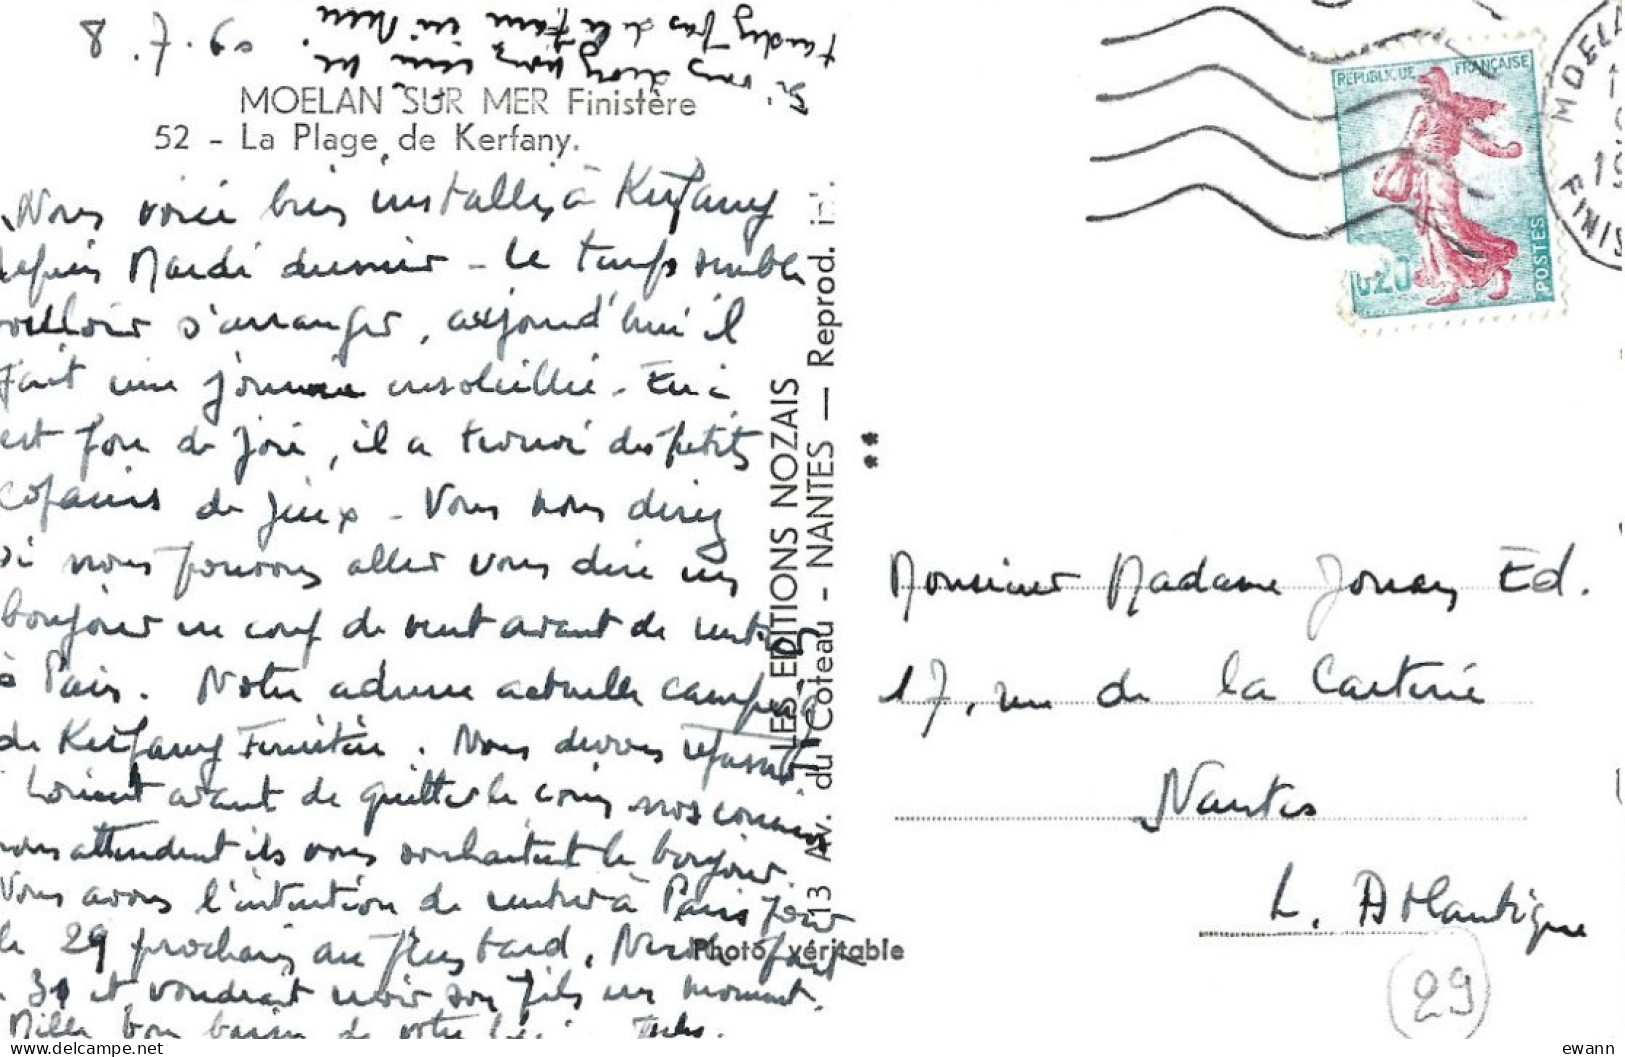 8.7.60
Si vous avez
tardez pas de la faire
MOELAN SUR MER Finistère
52 - La Plage de Kerfany.
Nous voici bien installés à Kerfany
depuis Mardi dernier - le temps semble
vouloir s'arranger, aujourd'hui il
fait une journée ensoleillée - Eric
est fou de joie, il a trouvé des petits
copains de jeux - Vous nous direz
si nous pouvons aller vous dire un
bonjour en coup de vent avant de rentrer
à Paris. Notre adresse actuelle camping
de Kerfany Finistère. Nous devons repasser
Lorient avant de quitter le coin, nos cousins
nous attendent ils vous souhaitent le bonjour.
Nous avons l'intention de rentrer à Paris pour
le 29 prochain au plus tard,
et voudrait revoir son fils un moment.
Mille bon baiser de votre
LES EDITIONS NOZAIS
13 Av. du Coteau - NANTES — Reprod. int.
Photo véritable
REPUBLIQUE FRANÇAISE
0,20
POSTES
MOELA
FINIS
Monsieur Madame Jouan Ed.
17, rue de la Carterie
Nantes
L. Atlantique
29
delcampe.net
ewann